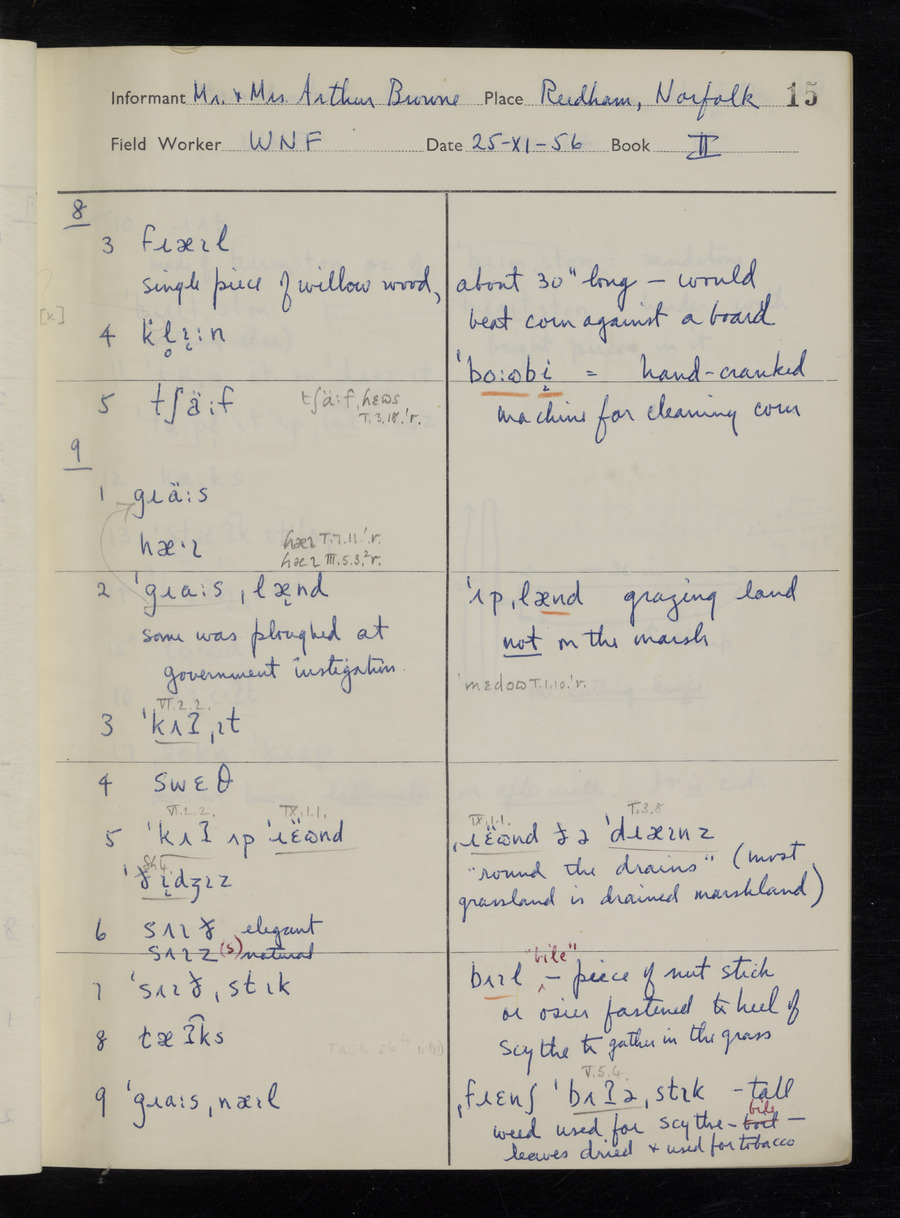 Informant Mr. & Mrs. Arthur Browne Place Reedham, Norfolk 15
Field Worker WNF Date 25-XI-56 Book II
8
3 flæɪl
single piece of willow wood,
[k]
4
5 tʃä:f tʃä:f,hɛɷs
T.3.18.'r.
9
1 gɹä:s
hæ·ɪ hæɪ T.7.11.'r.
hæɪ III.5.3.²r.
2 'gɹa:s ˌlænd
some was ploughed at
government instigation.
VI.2.2.
3 'kʌʔ ˌɪt
4 swɛθ
VI.2.2. IX.1.1.
5 'kʌʔ ʌp 'ɹɛ̈ɷnd
6 sʌɪð elegant
sʌɪz (s) natural
7 'sʌɪð ˌstɪk
8 tæʔ͡ks
9 'gɹa:s ˌnæɪl
about 30" long – would
beat corn against a board
'bo:ɷbi = hand-cranked
machine for cleaning corn
'ʌp ˌlænd grazing land
not on the marsh
'mɛdoɷ T.1.10.'r.
IX.1.1. T.3.8
ˌɹɛ̈ɷnd ðə 'dɹæɪnz
"round the drains" (most
grassland is drained marshland)
"bile"
bʌɪl – piece of nut stick
or osier fastened to heel of
scythe to gather in the grass
V.5.4.
ˌfɹɛnʃ 'bʌʔə ˌstɪk – tall
weed used for scythe – boil bile –
leaves dried & used for tobacco